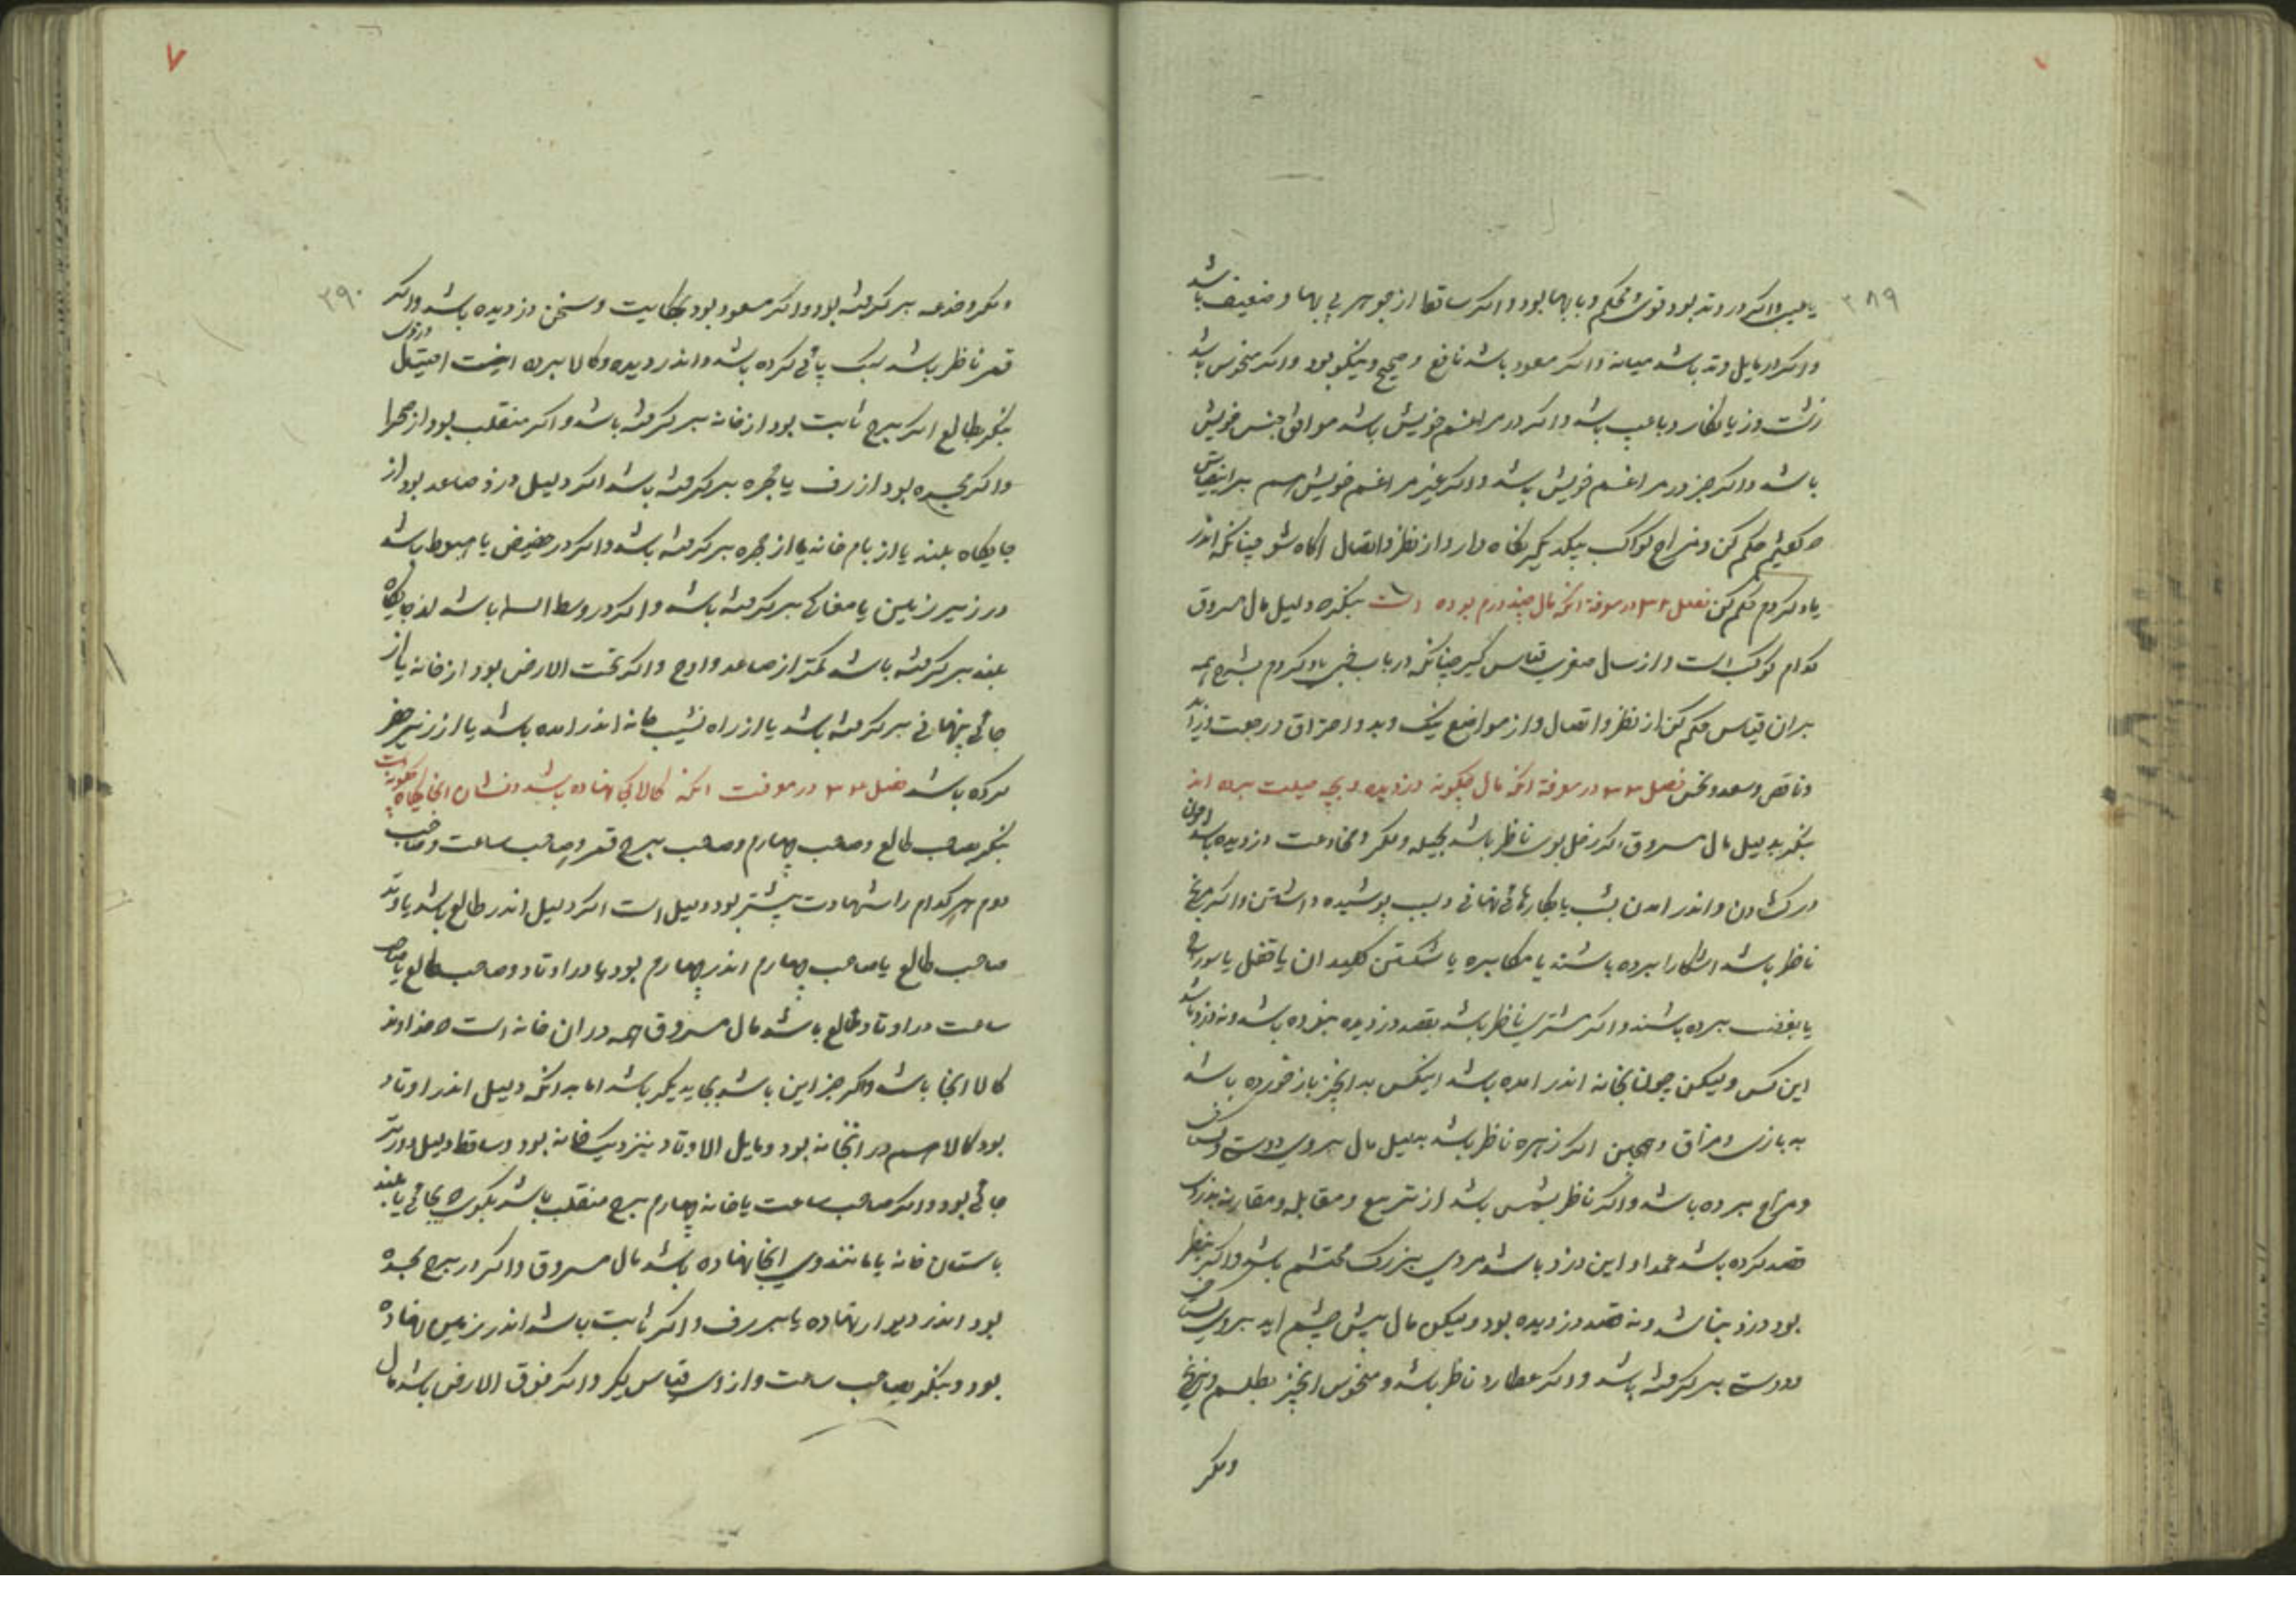 ۳۸۹
یا عیب واکر در وتد بود قوی و محکم و با بها بود و اکر ساقط از جوهر بی بها و ضعیف باشد
واکر در مایل وتد باشد میانه و اکر مسعود باشد نافع و صحیح و نیکو بود واکر منحوس باشد
زشت و زیانکار و با عیب باشد و اکر در مراغم خویش باشد موافق جنس خویش
باشد و اکر جز در مراغم خویش باشد و اکر غیر مراغم خویش هم بر این قیاس
که کفتیم حکم کن و مزاج کواکب بیکدیکر نکاه دار و از نظر و اتصال اکاه شو چنانکه اندر
یاد کردم حکم کن فصل ۳۲ در معرفة انکه مال چند درم بوده است بنکر که دلیل مال مسروق
کدام کوکب است و از سال صغری قیاس کیر چنانکه در باب خبی یاد کردم بشرح همه
بران قیاس حکم کن از نظر و اتصال و از مواضع نیک و بد و احتراق و رجعت و زاید
و ناقص و سعد و نحس فصل ۳۳ در معرفة انکه مال چکونه دزدیده و بچه حیلت برده اند
بنکر بدلیل مال مسروق اکر زحل بوی ناظر باشد بحیله و مکر و مخادعت دزدیده باشد
در کشادن و اندر امدن بشب یا بکارهائی نهانی و لیب پوشیده داشتن و اکر مریخ
ناظر باشد اشکارا برده باشند یا مکابره یا شکستن کلیدان یا قفل یا سوراخ
یا بغفلت برده باشند و اکر مشتری ناظر باشد بقصد دزدیده نبوده باشد و نه دزد باشد
این کس ولیکن چون بخانه اندر امده باشد اینکس بدان چیز باز خورده باشد
به بازی و مزاق و همچنین اکر زهره ناظر باشد بدلیل مال بروی دوست و لیس
و مزاح برده باشد و اکر ناظر بشمس باشد از تربیع و مقابله و مقارنه بدزدی
قصد کرده باشد عمدا و این دزد باشد مردی بزرک محتشم باشد و اکر بی نظر
بود دزد نباشد و نه قصد دزدیده بود ولیکن مال پیش چشم اید بروی
دوست بر کرفته باشد و اکر عطارد ناظر باشد و منحوس ان چیز بطلسم و نیرنج
ومکر
۷
۳۹۰
ومکر و خدعه بر کرفته بود و اکر مسعود بود بحکایت و سخن دزدیده باشد و اکر
قمر ناظر باشد سبک پائی کرده باشد و اندر دیده و کالا برده اینست
بنکر بطالع اکر برج ثابت بود از خانه بر کرفته باشد و اکر منقلب بود از صحرا
و اکر مجسده بود از رف یا حجره بر کرفته باشد اکر دلیل دزد صاعد بود از
جایکاه بلند یا از بام خانه یا از حجره بر کرفته باشد و اکر در حضیض یا هبوط باشد
در زیر زمین یا مغاکی بر کرفته باشد و اکر در وسط السما باشد از جایکاه
بلند بر کرفته باشد کمتر از صاعد و اوج و اکر تحت الارض بود از خانه یا از
جائی پنهانی بر کرفته باشد یا از راه نشیب خانه اندر امده باشد یا از زیر حفر
کرده باشد فصل ۳۴ در معرفت انکه کالا کجا نهاده باشد و نشان ان جایکاه چکونه است
بنکر بصاحب طالع و صاحب چهارم و صاحب برج قمر و صاحب ساعت و صاحب
دوم هر کدام را شهادت بیشتر بود دلیل است اکر دلیل اندر طالع باشد یا وتد
صاحب طالع یا صاحب چهارم اندر چهارم بود یا در اوتاد و صاحب طالع یا صاحب
ساعت در اوتاد طالع باشد مال مسروق همه در ان خانه است که خداوند
کالا انجا باشد واکر جز این باشد بجای دیکر باشد اما بدانکه دلیل اندر اوتاد
بود کالا هم در انخانه بود و مایل الاوتاد بنزدیک خانه بود و ساقط دلیل دورتر
جائی بود و اکر صاحب ساعت یا خانه چهارم برج منقلب باشد بکوی که بجائی یا بلند
باستان خانه یا مانند وی انجا نهاده باشد مال مسروق و اکر در برج مجسده
بود اندر دیوار نهاده یا بر رف و اکر ثابت باشد اندر زمین نهاده
بود و بنکر بصاحب ساعت و از وی قیاس بکیر و اکر فوق الارض باشد مال